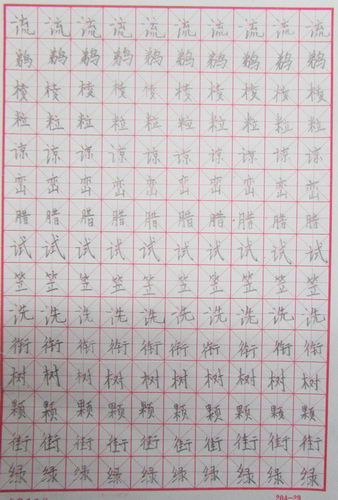 流流流流流流流流流流
棱棱棱棱棱棱棱棱棱棱
粒粒粒粒粒粒粒粒粒粒
谅谅谅谅谅谅谅谅谅谅
峦峦峦峦峦峦峦峦峦峦
腊腊腊腊腊腊腊腊腊腊
试试试试试试试试试试
笠笠笠笠笠笠笠笠笠笠
洗洗洗洗洗洗洗洗洗洗
衔衔衔衔衔衔衔衔衔衔
树树树树树树树树树树
颗颗颗颗颗颗颗颗颗颗
街街街街街街街街街街
绿绿绿绿绿绿绿绿绿绿
204-29